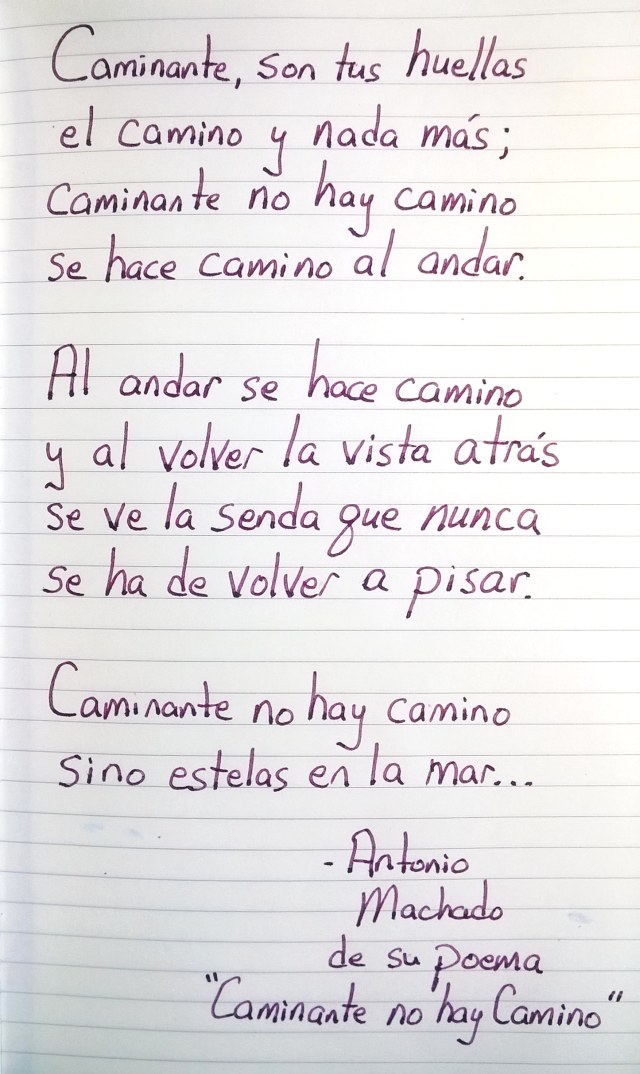 Caminante, son tus huellas
el camino y nada más;
Caminante no hay camino
se hace camino al andar.
Al andar se hace camino
y al volver la vista atrás
se ve la senda que nunca
se ha de volver a pisar.
Caminante no hay camino
sino estelas en la mar...
- Antonio
Machado
de su poema
"Caminante no hay Camino"